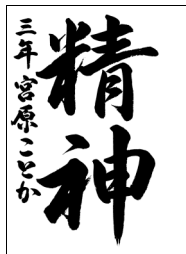 精神
三年 宮原ことか